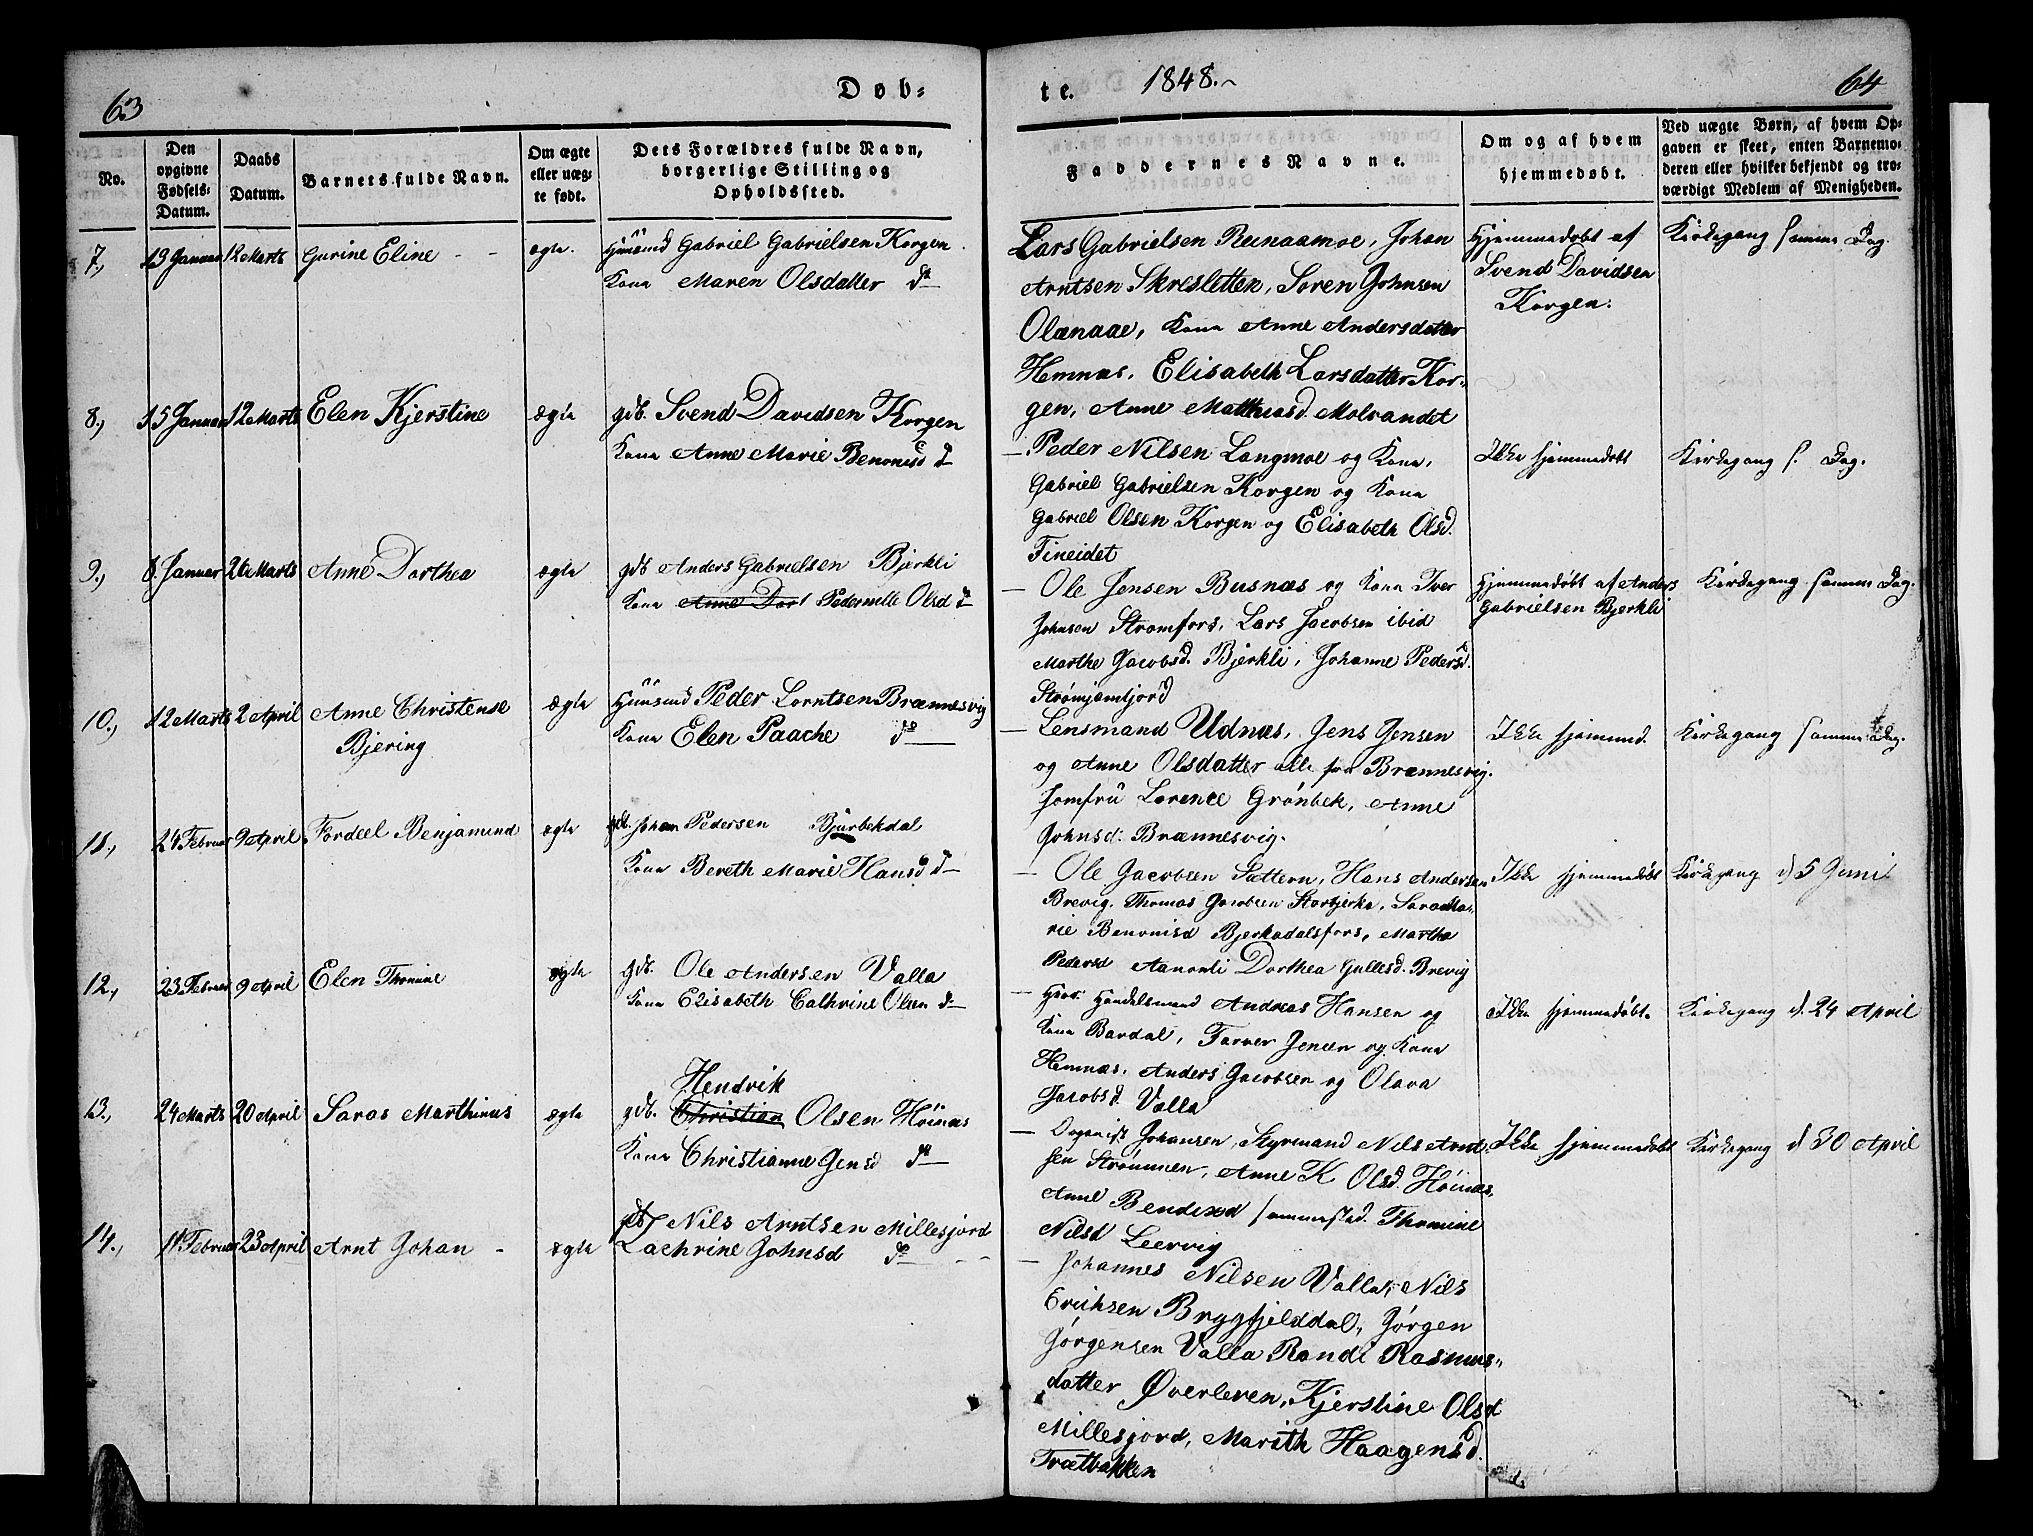 63
Døb-
te.
1848.
64
No.
Den opgivne Fødsels-Datum.
Daabs Datum.
Barnets fulde Navn.
Om ægte eller uæg-te født.
Dets Forældres fulde Navn, borgerlige Stilling og Opholdssted.
Faddernes Navne.
Om og af hvem hjemmedøbt.
Ved uægte Børn, af hvem Op-
gaven er skeet, enten Barnemo-
deren eller hvilket bekjendt og tro-
værdigt Medlem af Menigheden.
7., 13 Januar 12 Marts Gurine Eline - - ægte. Huusmd Gabriel Gabrielsen Korgen
Kone Maren Olsdatter do
Lars Gabrielsen Runaamoe, Johan
Arntsen Skresletten, Soren Johnsen
Olænaae, Kone Anne Andersdatter
Hemnæs, Elisabeth Larsdatter Kor-
gen, Anne Matthiasd Molrandet
Hjemmedøbt af
Svend Davidsen
Korgen.
Kirkegang samme Dag.
8., 15 Januar 12 Marts Elen Kjerstine ægte gdb. Svend Davidsen Korgen
Kone Anne Marie Benonisd do
- Peder Nilsen Langmoe og Kone,
Gabriel Gabrielsen Korgen og Kone
Gabriel Olsen Korgen og Elisabeth Olsd.
Fineidet
Ikke hjemmedøbt
Kirkegang s. Dag.
9., 8. Januar 26 Marts Anne Dorthea ægte gdb Anders Gabrielsen Bjerkli
Kone Anne Dort Pedernille Olsd do
- Ole Jensen Busnæs og Kone Iver
Johnsen Stromfors, Lars Jacobsen ibid
Marthe Jacobsd. Bjerkli, Johanne Pedersd.
Hjemmedøbt af Anders
Gabrielsen Bjerkli
Kirkegang samme Dag.
10., 12 Marts 2 April Anne Christense
Bjering
ægte Huusmd Peder Lorntsen Brænnesvig
Kone Elen Paache do
- Lensmand Udnæs, Jens Jensen
og Anne Olsdatter alle fra Brænnesvig.
Jomfru Lorence Grønbek, Anne
Johnsd. Brænnesvig.
Ikke hjemmd.
Kirkegang samme Dag.
11., 24 Februar 9 April Fordeel Benjamind ægte gdb. Johan Pedersen Bjurbekdal
Kone Bereth Marie Hansd do
- Ole Jacobsen Sættern, Hans Andersen
Brevig, Thomas Jacobsen Storbjerka, Sara Ma-
rie Benonisd Bjerkadalsfors, Martha
Pedersd Aanonli Dorthea Gullesd. Brevig
Ikke hjemmedøbt
Kirkegang d 5 Juni
12., 23 Februar 9 April Elen Thomine ægte gdb. Ole Andersen Valla
Kone Elisabeth Cathrine Olsen do
- Handelsmand Andreas Hansen og
Kone Bardal, Farver Jensen og Kone
Hemnæs, Anders Jacobsen og Olava
Jacobsd. Valla
Ikke hjemmedøbt.
Kirkegang d. 24 April
13., 24 Marts 20 April Saras Marthinus ægte gdb. Christian Hendrik Olsen Høinæs
Kone Christianne Jensd do
- Organist Johansen, Styrmand Nils Arnt-
sen Strømmen, Anne K Olsd. Høinæs,
Anne Bendixd sammested. Thomine
Nilsd Leervig
Ikke hjemmedøbt
Kirkegang d 30 April
14., 11 Februar 23 April Arnt Johan - ægte gdb Nils Arntsen Millesjord
Zachrine Johnsd do - -
- Johannes Nilsen Valla, Nils
Erichsen Brygfjelddal, Jørgen
Jørgensen Valla Randi Rasmus-
datter Øverleren, Kjerstine Olsd
Millesjord, Marith Haagensd.
Trætbakken